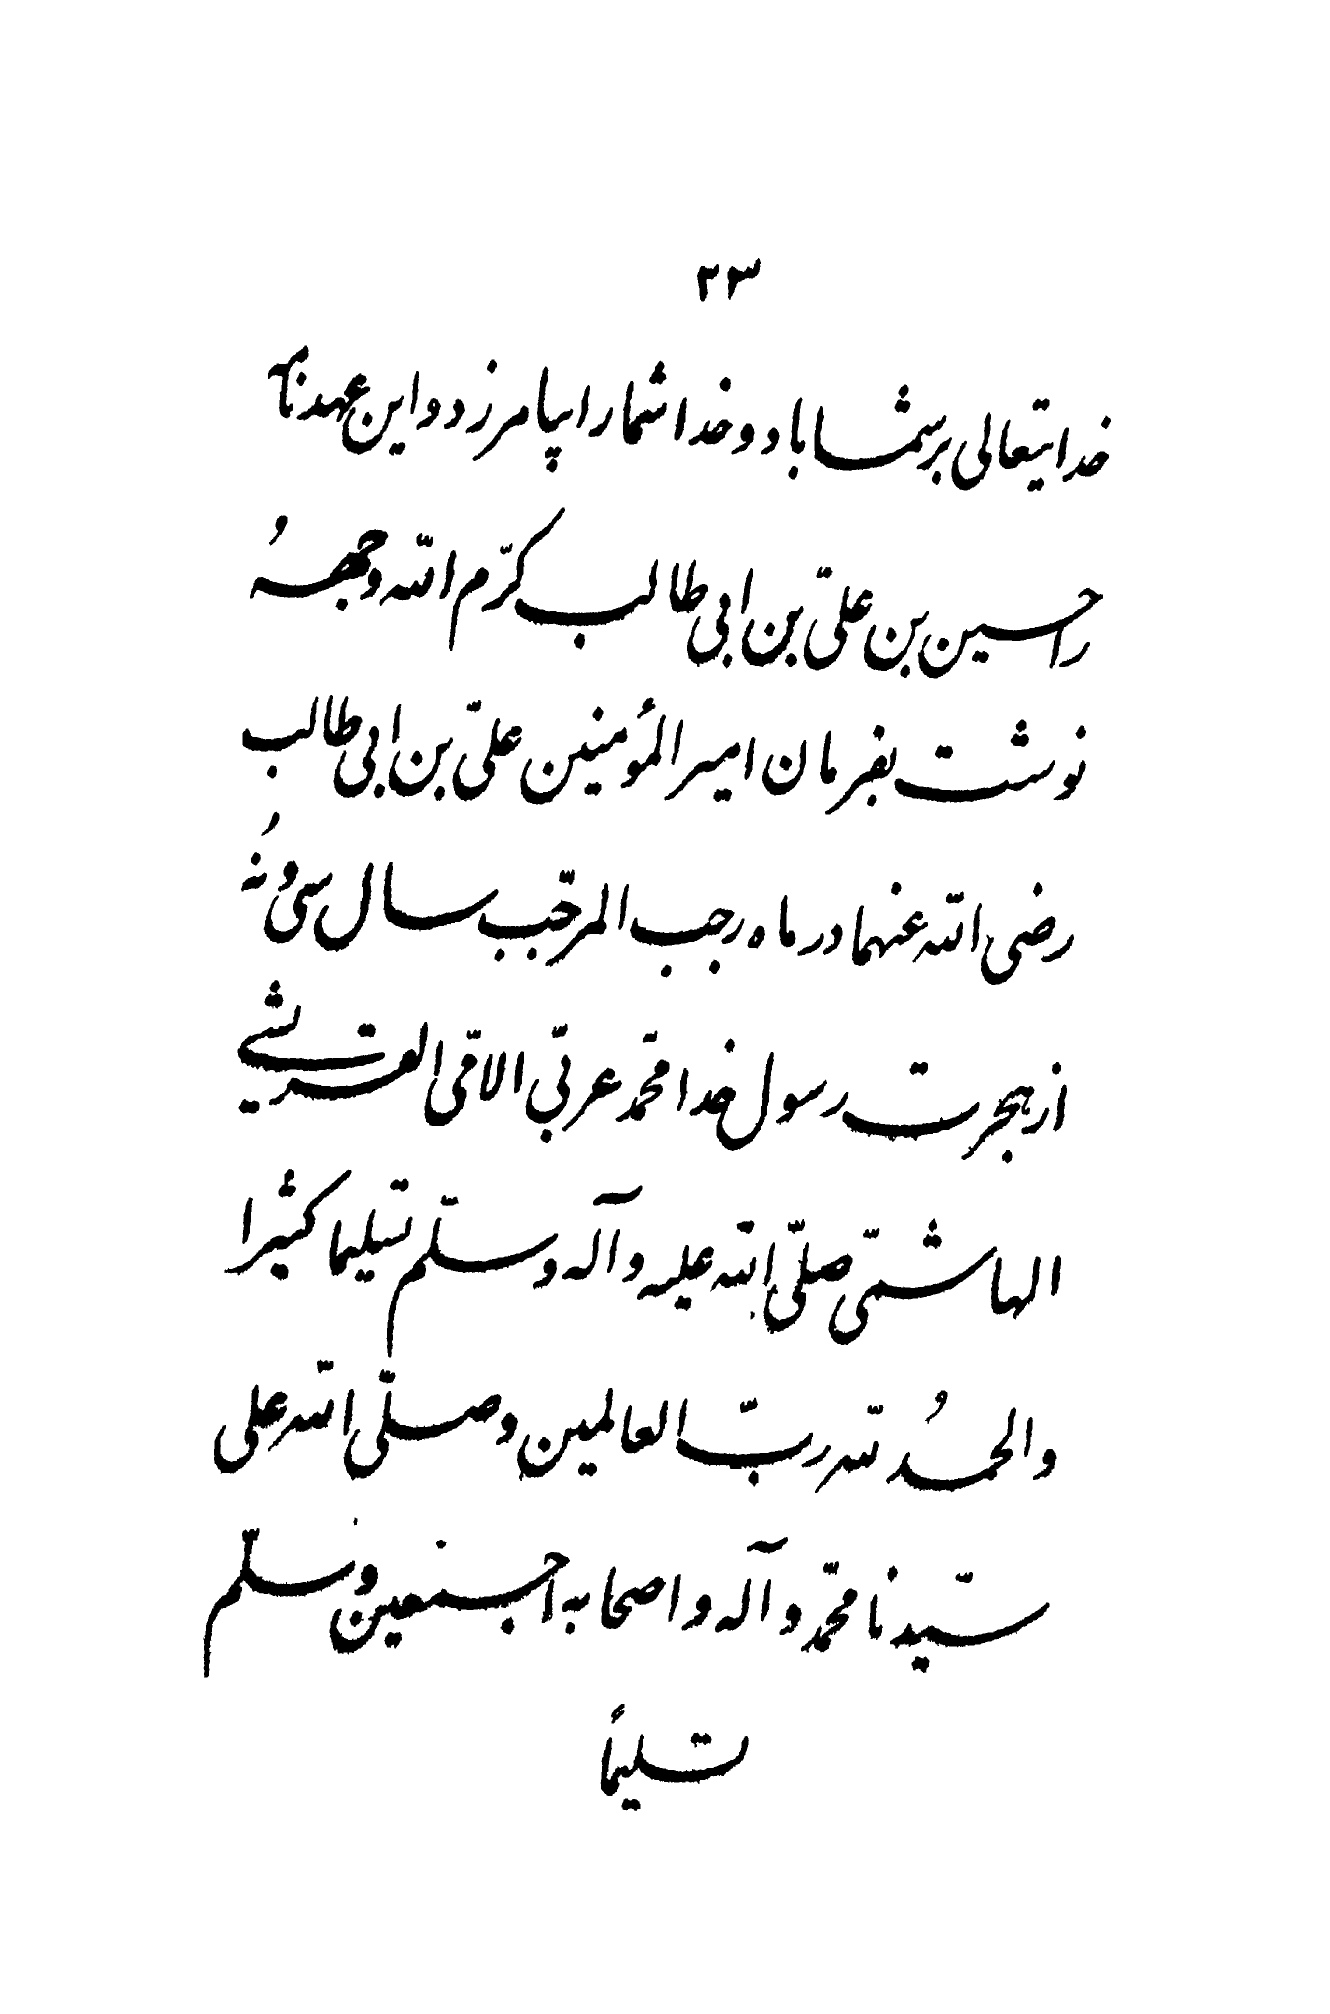 ۲۳
خدایتعالی بر شما باد و خدا شما را بیامرزد و این عهدنامه
را حسین بن علیّ بن ابی طالب کرّم اللّه وجههُ
نوشت بفرمان امیر المؤمنین علیّ بن ابی طالب
رضی اللّه عنهما در ماه رجب المرجّب سال سی و نُه
از هجرت رسول خدا محمّد عربیّ الامّی القریشے
الهاشمیّ صلّی اللّه علیه و آله و سلّم تسلیما کثیرا
و الحمدُ للّه ربّ العالمین و صلّی اللّه علی
سیّدنا محمّد و آله و اصحابه اجمعین و سلّم
تسلیماً